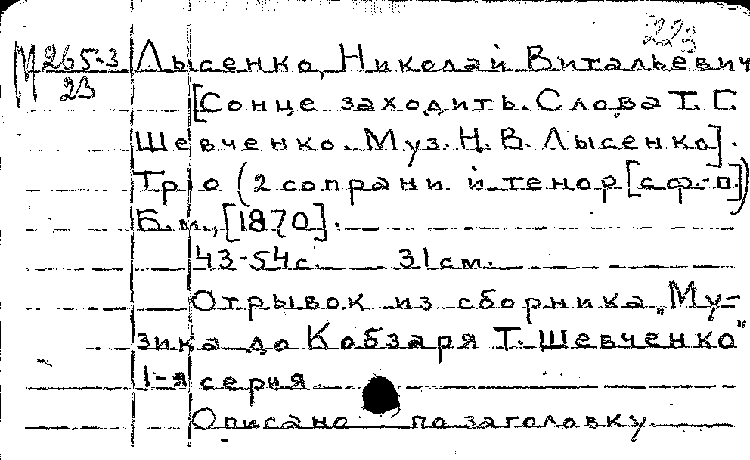 223
М 265-3 Лысенко, Николай Витальевич
23
[Сонце заходить. Слова Т. Г.
Шевченко. Муз. Н. В. Лысенко].
Тріо (2 сопрани й тенор [с ф.-п.])
Б. м., [1870].
43-54 с. 31 см.
Отрывок из сборника „Му-
зика до Кобзаря Т. Шевченко"
1-я серия
Описано по заголовку